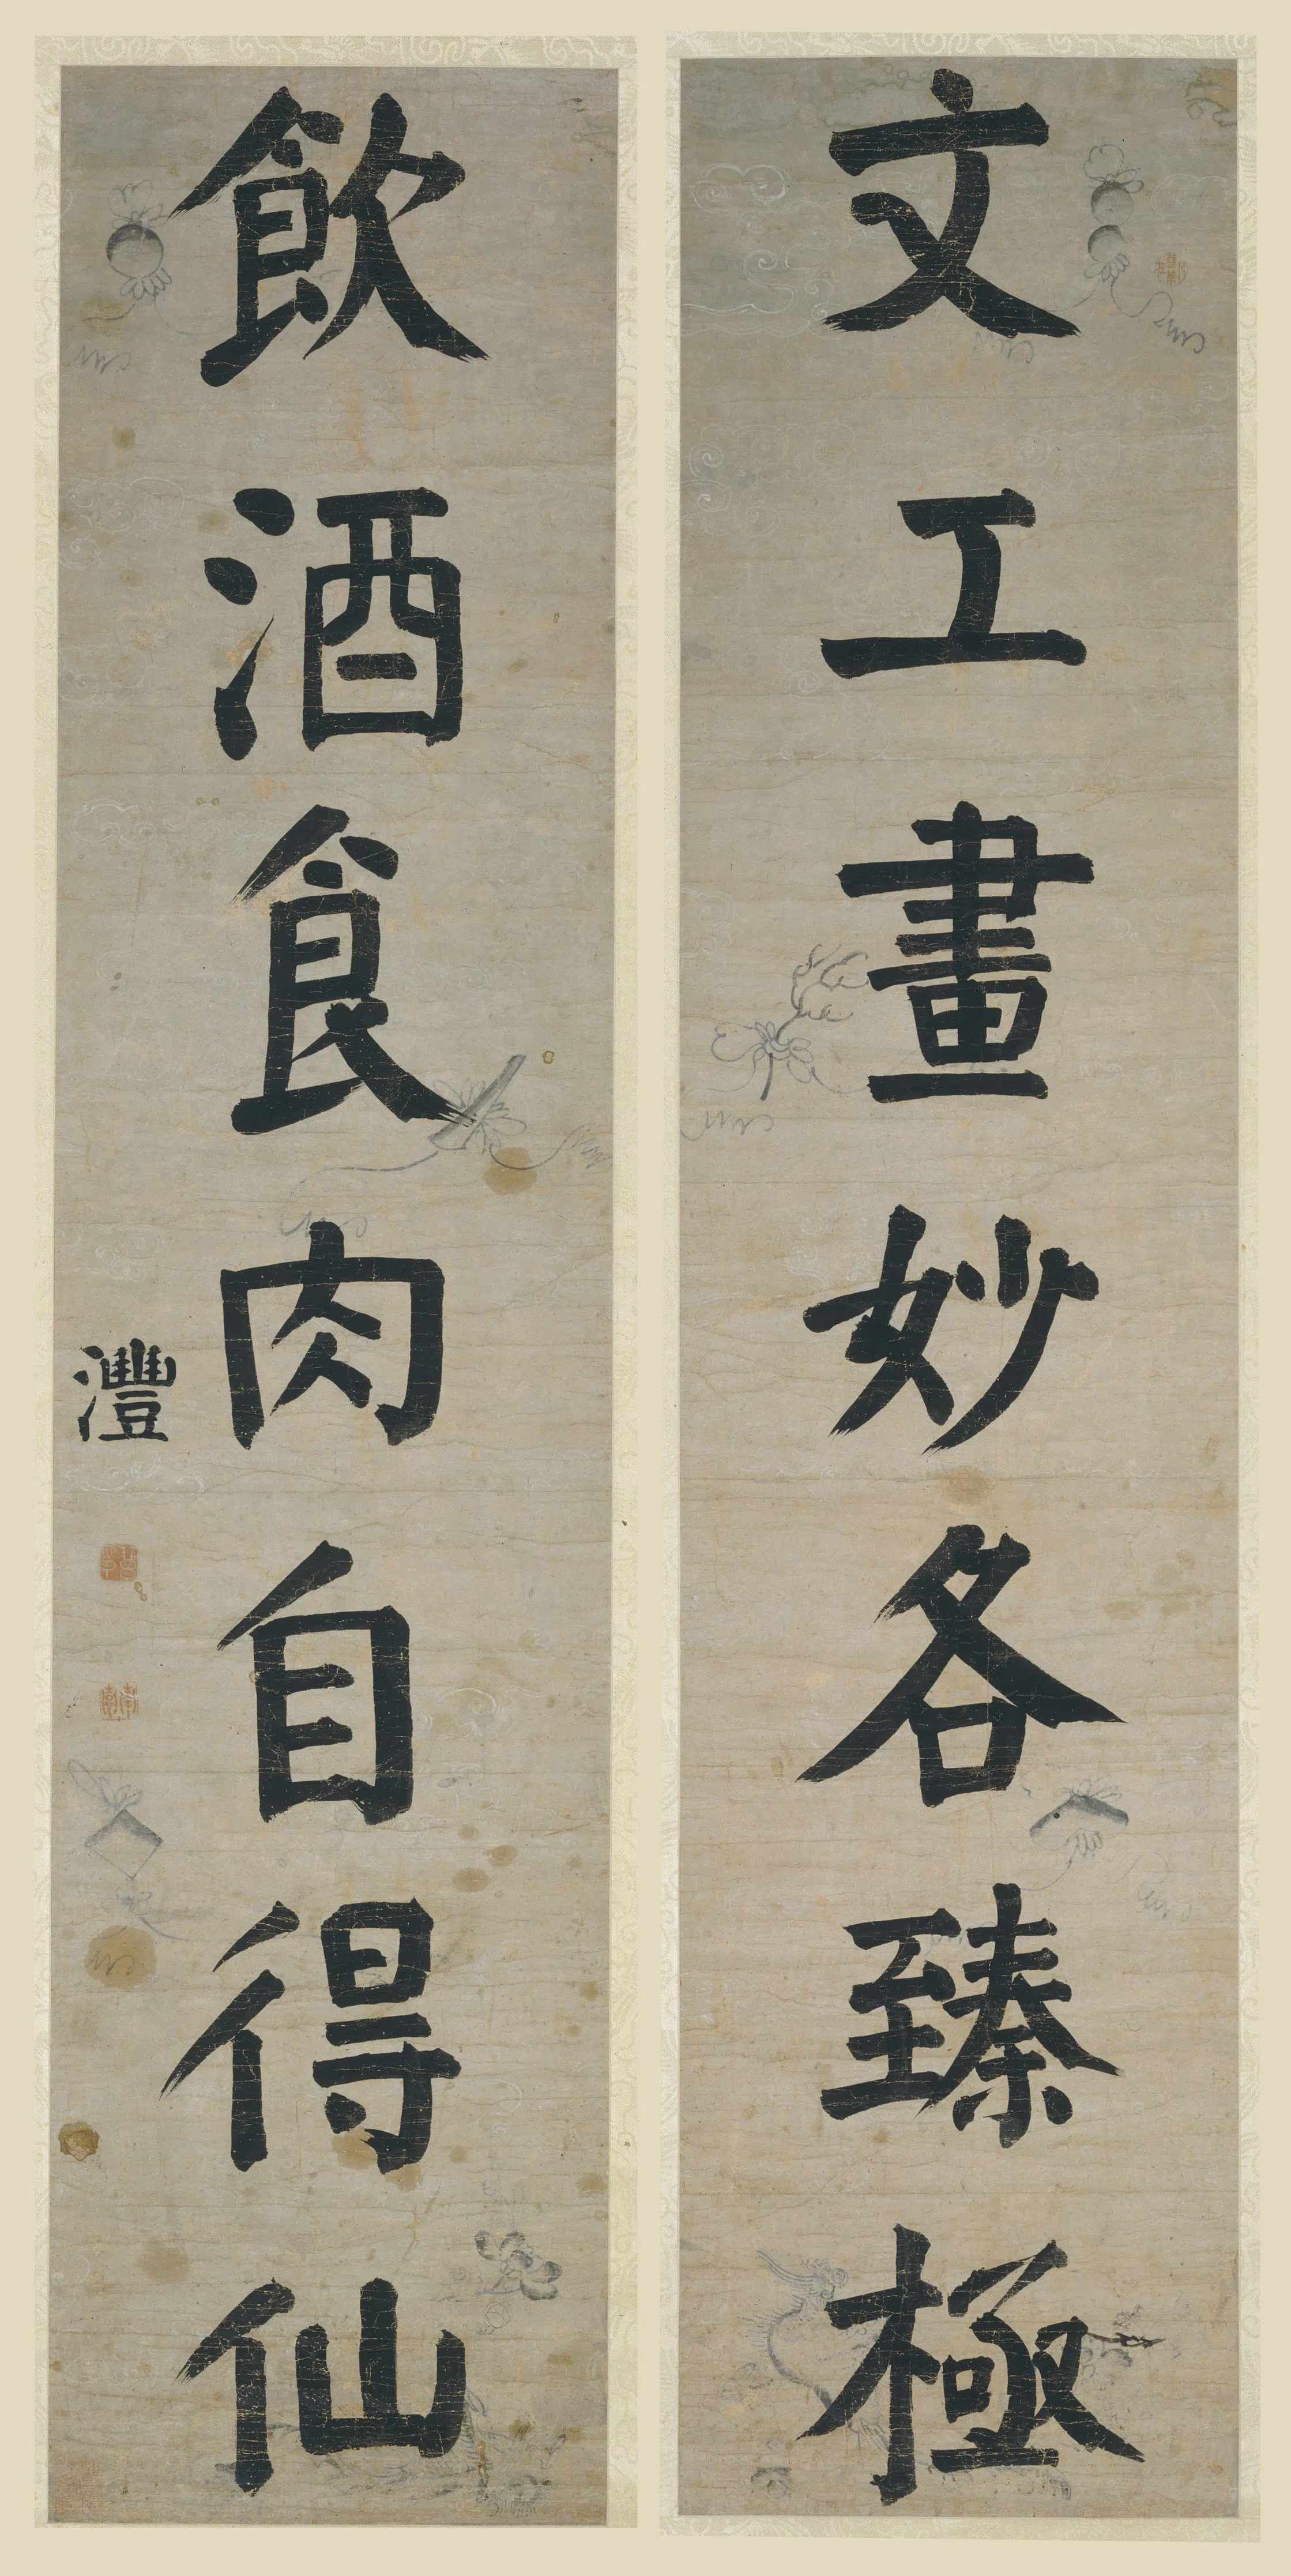 文工畫妙各臻極
飲酒食肉自得仙
灃